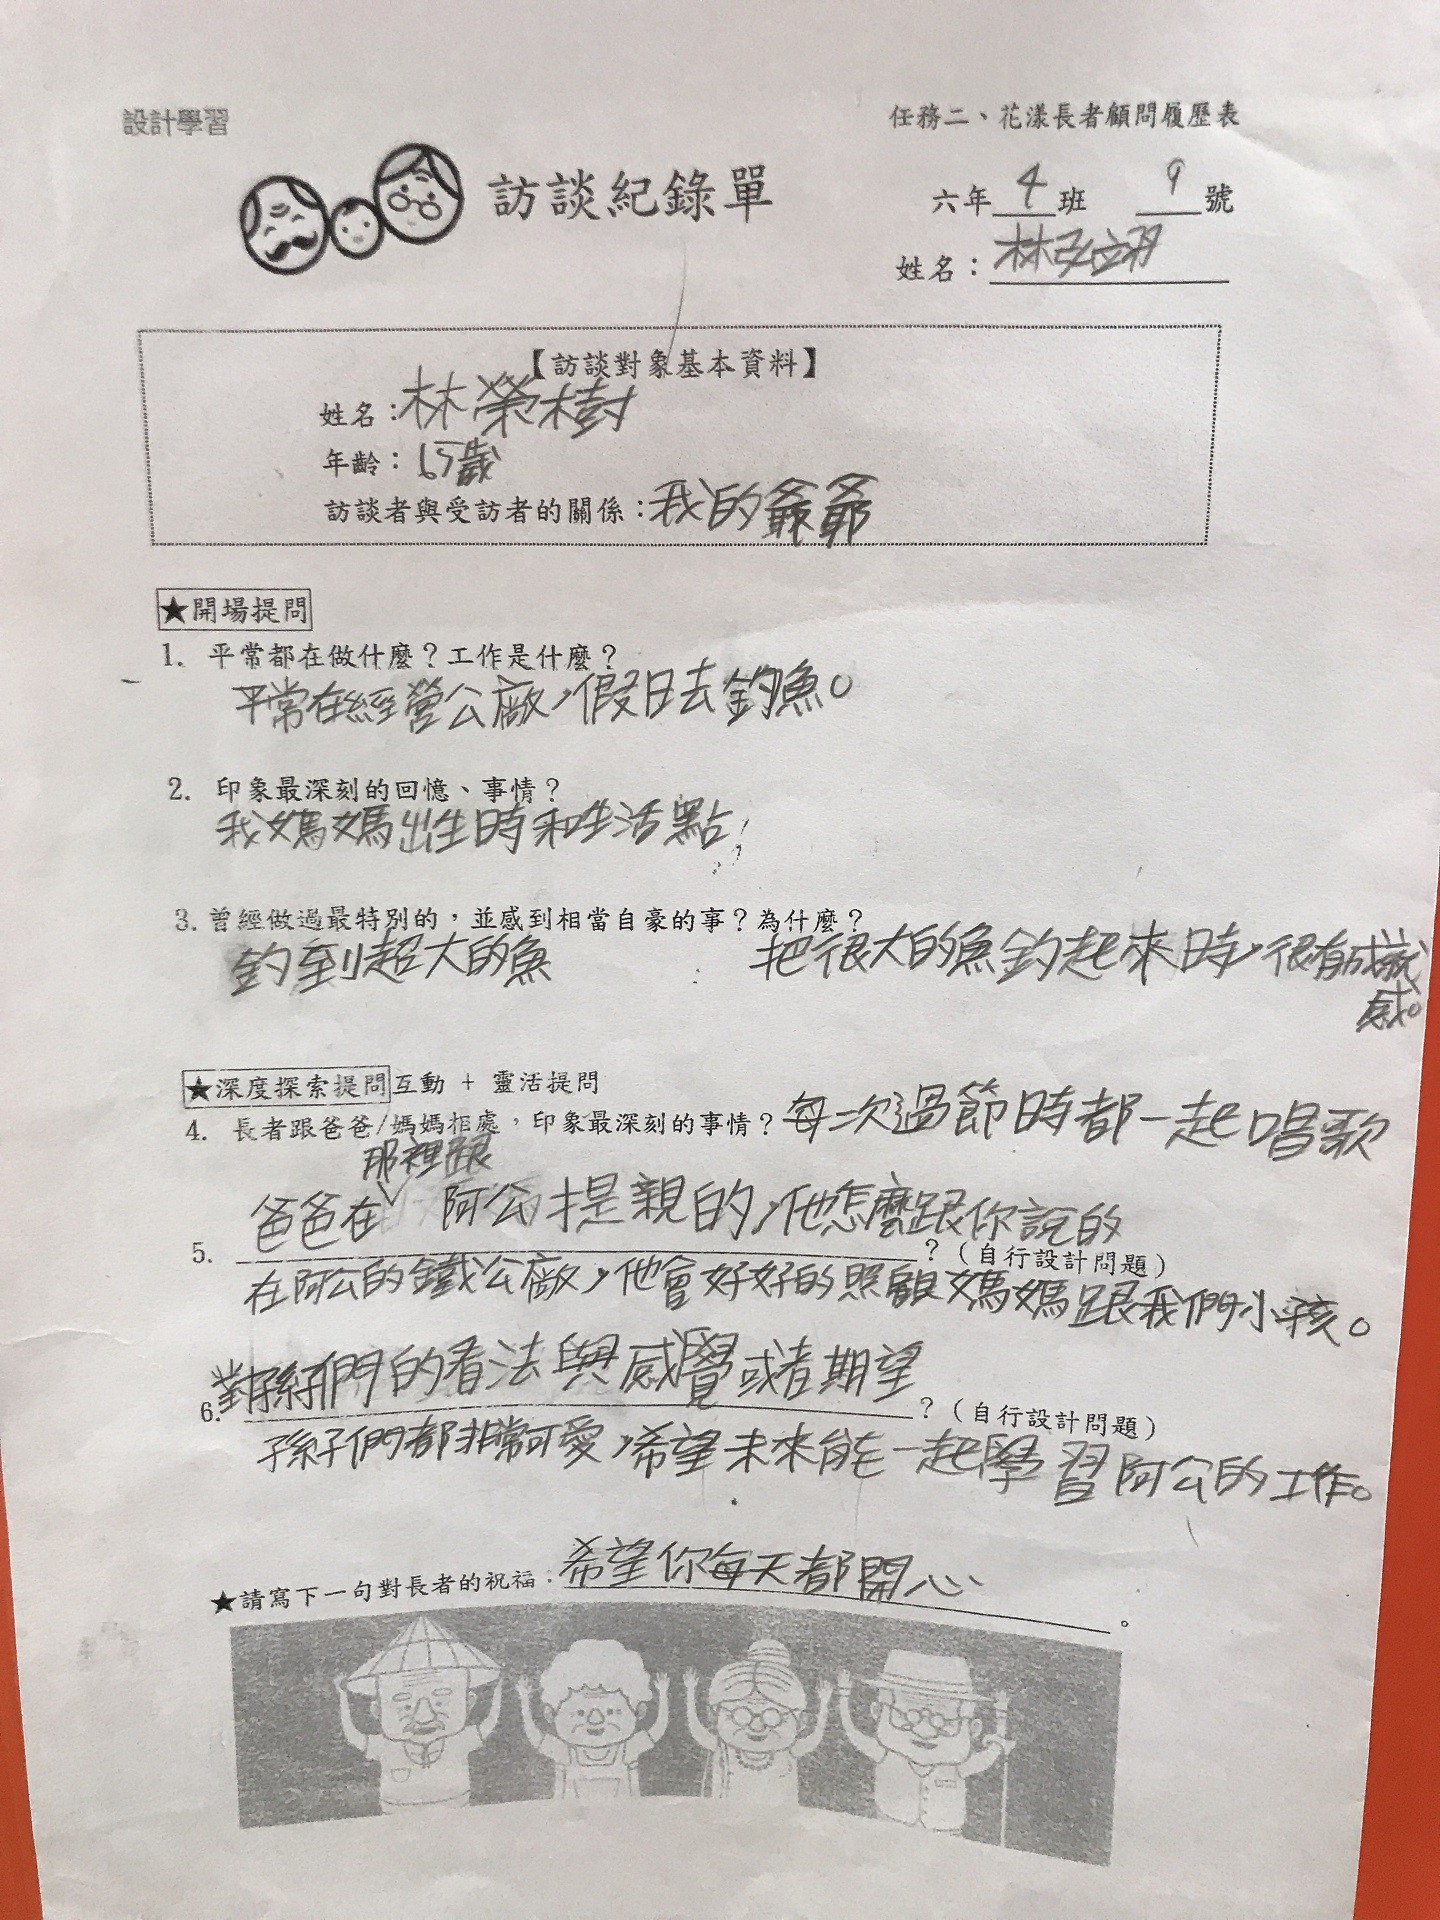 設計學習
任務二、花漾長者顧問履歷表
訪談紀錄單
六年 4 班 9 號
姓名：林弘翊
【訪談對象基本資料】
姓名：林榮樹
年齡：65歲
訪談者與受訪者的關係：我的爺爺
★開場提問
1. 平常都在做什麼？工作是什麼？
平常在經營公廠，假日去釣魚。
2. 印象最深刻的回憶、事情？
我媽媽出生時和生活點
3. 曾經做過最特別的，並感到相當自豪的事？為什麼？
釣到超大的魚 把很大的魚釣起來時，很有成就
感。
★深度探索提問 互動 + 靈活提問
4. 長者跟爸爸/媽媽相處，印象最深刻的事情？每次過節時都一起唱歌
爸爸在那裡跟阿公提親的，他怎麼跟你說的
5. ？（自行設計問題）
在阿公的鐵公廠，他會好好的照顧媽媽跟我們小孩。
對孫子們的看法與感覺或者期望
6. ？（自行設計問題）
孫子們都非常可愛，希望未來能一起學習阿公的工作。
★請寫下一句對長者的祝福：希望你每天都開心。